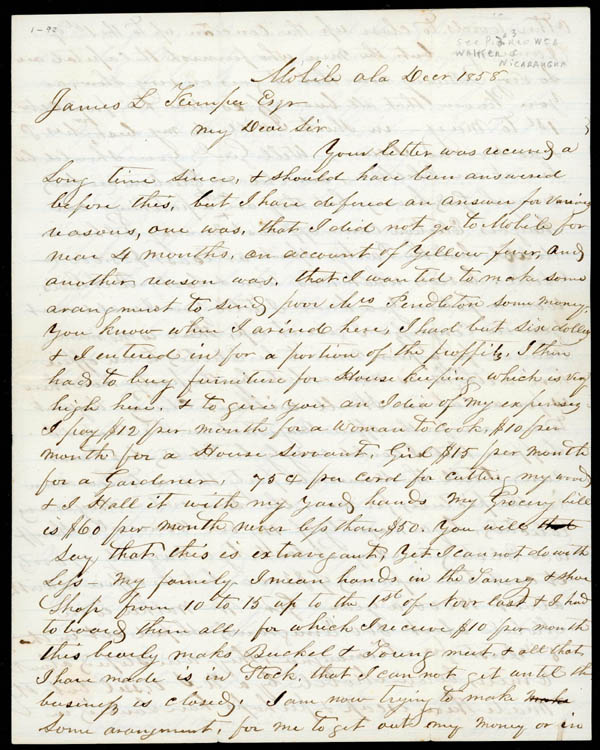 1-92
See P. 2 & 3
Re Web
Walker &
Nicaragua
Mobile ala Decr 1858
James L. Kemper Esqr
My Dear Sir
Your letter was received a
long time since, & should have been answered
before this, but I have defered an answer for various
reasons, one was, that I did not go to Mobile for
near 4 months, on account of Yellow fever, and
another reason was, that I wanted to make some
arangment to send poor Mrs Pendleton some money.
You know when I arived here, I had but six dollars
& I entered in for a portion of the proffits, I then
had to buy furniture for House keeping which is very
high here. & to give you an Idea of my expenses
I pay $12 per month for a woman to cook, $10 per
month for a House Servant, Girl $15 per month
for a Gardener, 75 ¢ per cord for cutting my wood
& I Hall it with my Yard hands My Grocery bill
is $60 per month never less than $50. You will that
say that this is extravigant, Yet I can not do with
less - My family I mean hands in the Tanery & Shoe
Shop from 10 to 15 up to the 1st of Novr last & I had
to board them all, for which I receive $10 per month
this bearly maks Buckel & Toung meet, & all that
I have made is in Stock, that I can not get until the
business is closed. I am now trying to make make
some arangment, for me to get out my money or in